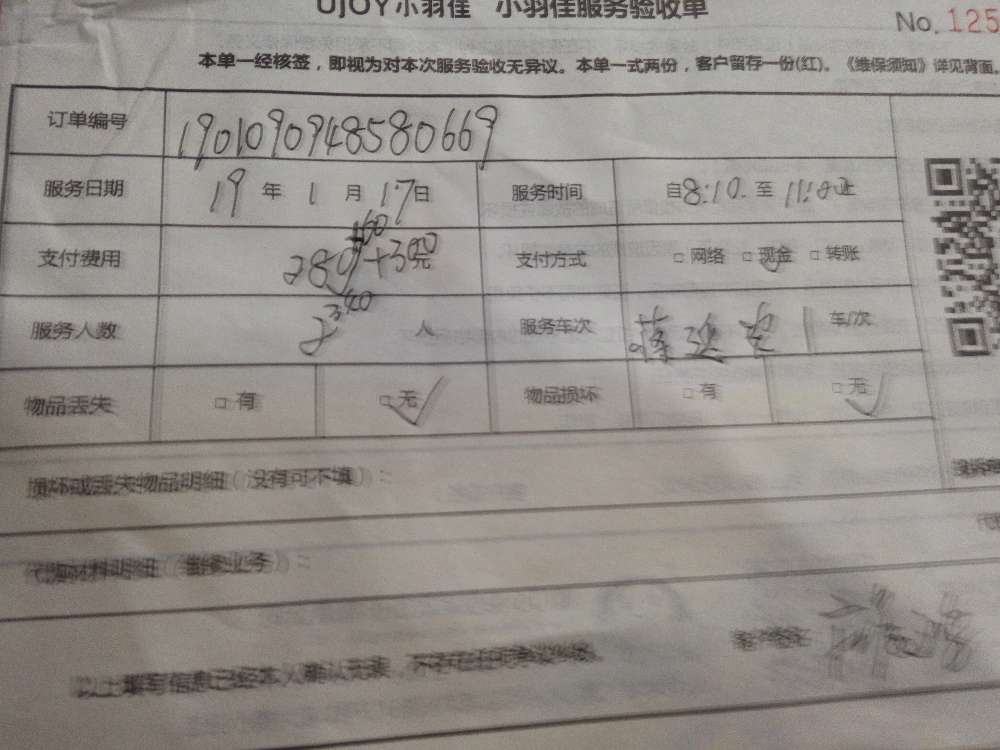 UJOY小羽佳 小羽佳服务验收单
No. 125
本单一经核签，即视为对本次服务验收无异议。本单一式两份，客户留存一份(红)。《维保须知》详见背面。
订单编号 1901090948580669
服务日期 19 年 1 月 17 日 服务时间 自8:10. 至 11:
支付费用 280 +300 元 支付方式 □ 网络 □ 现金 □ 转账
340
服务人数 2 人 服务车次 1 车/次
物品丢失 □ 有 □ 无 物品损坏 □ 有 □ 无
损坏或丢失物品明细（没有可不填）：
代购材料明细（维修业务）：
以上填写信息已经本人确认无误，
客户签名：